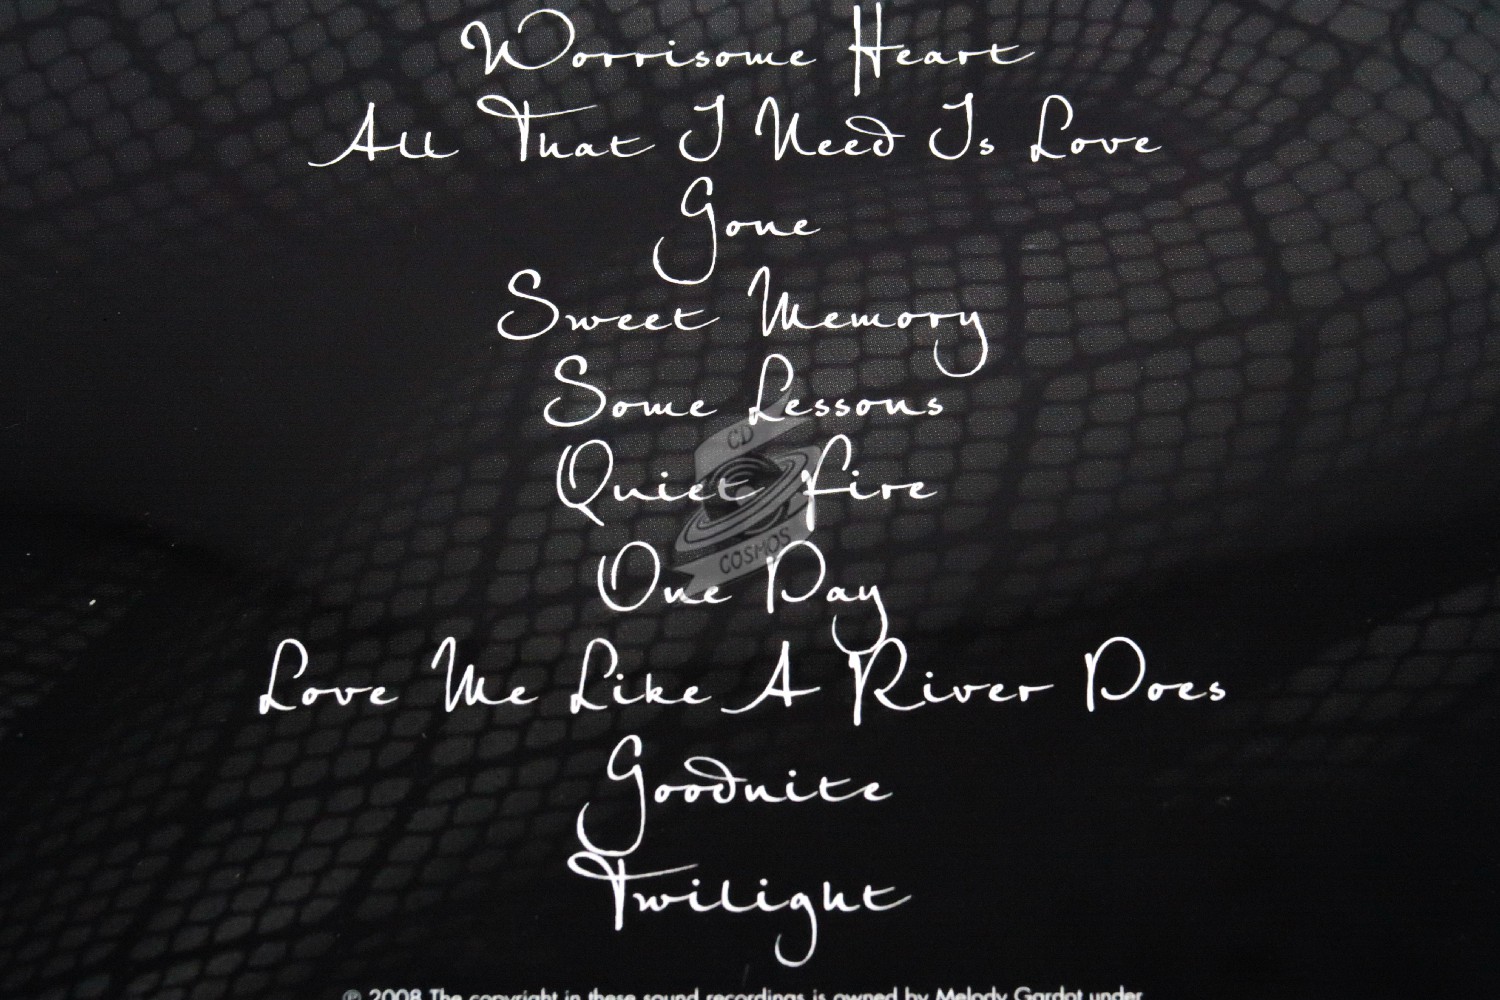 Worrisome Heart
All That I Need Is Love
Gone
Sweet Memory
Some Lessons
Quiet Fire
CD
COSMOS
One Day
Love Me Like A River Does
Goodnite
Twilight
℗ 2008 The copyright in these sound recordings is owned by Melody Gardot under